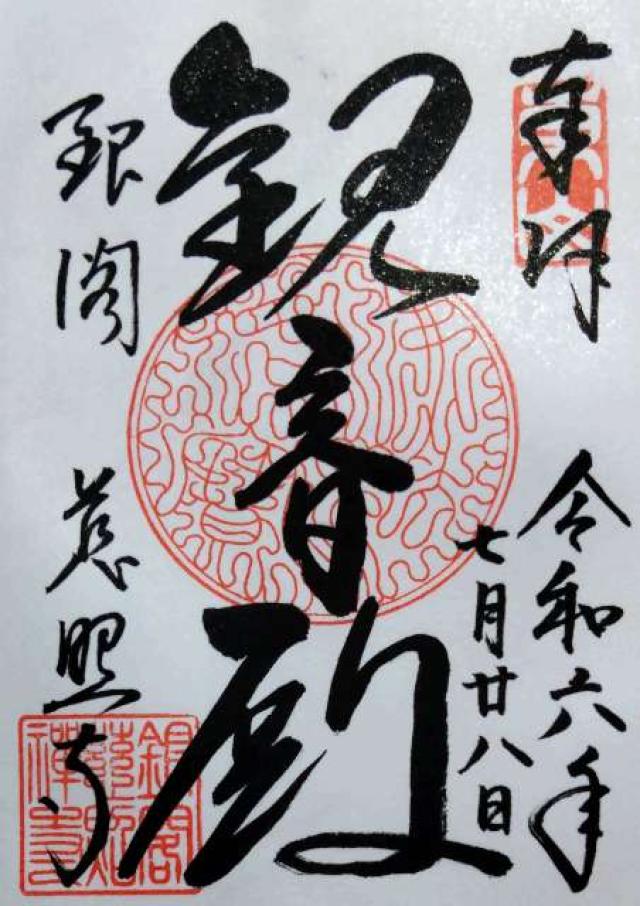 奉拝
令和六年
七月廿八日
観音殿
銀閣
慈照寺
銀閣
慈照
禅寺